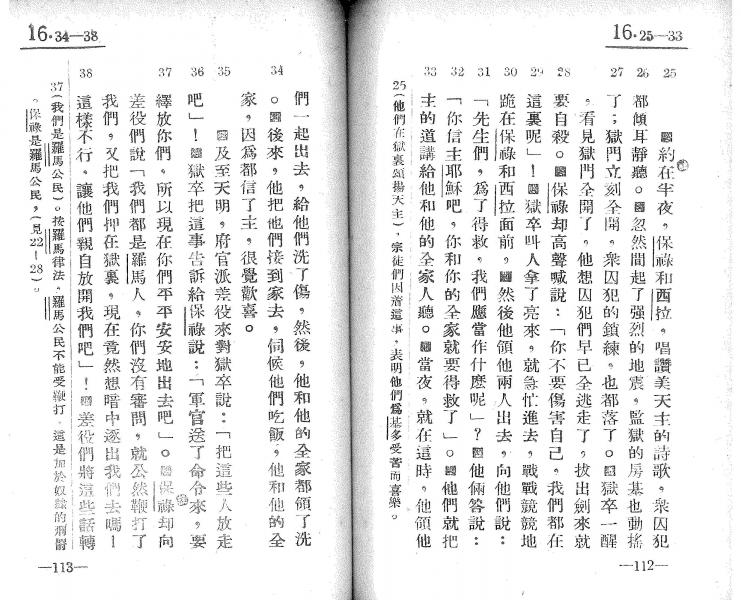 16·25—33
25 約在半夜，保祿和西拉，唱讚美天主的詩歌，衆囚犯
26 都傾耳靜聽。忽然間起了强烈的地震，監獄的房基也動搖
27 了；獄門立刻全開，衆囚犯的鎖練，也都落了。獄卒一醒
，看見獄門全開了，他想囚犯們早已全逃走了，拔出劍來就
28 要自殺。保祿却高聲喊說：「你不要傷害自己，我們都在
29 這裏呢」！獄卒叫人拿了亮來，就急忙進去，戰戰競競地
30 跪在保祿和西拉面前，然後他領他兩人出去，向他們說：
31 「先生們，爲了得救，我們應當作什麽呢」？他倆答說：
32 「你信主耶穌吧，你和你的全家就要得救了」。他們就把
33 主的道講給他和他的全家人聽。當夜，就在這時，他領他
25（他們在獄裏頌揚天主），宗徒們因着這事，表明他們爲基多受苦而喜樂。
—112—
16·34—38
們一起出去，給他們洗了傷，然後，他和他的全家都領了洗
34 。後來，他把他們接到家去，伺候他們吃飯，他和他的全
家，因爲都信了主，很覺歡喜。
35 及至天明，府官派差役來對獄卒說：「把這些人放走
36 吧」！獄卒把這事告訴給保祿說：「軍官送了命令來，要
37 繹放你們，所以現在你們平平安安地出去吧」。保祿却向
差役們說「我們都是羅馬人，你們沒有審問，就公然鞭打了
我們，又把我們押在獄裏，現在竟然想暗中逐出我們去嗎！
38 這樣不行，讓他們親自放開我們吧」！差役們將這些話轉
37（我們是羅馬公民）。按羅馬律法，羅馬公民不能受鞭打，這是加於奴隸的刑罰
。保祿是羅馬公民，（見22—28）。
—113—